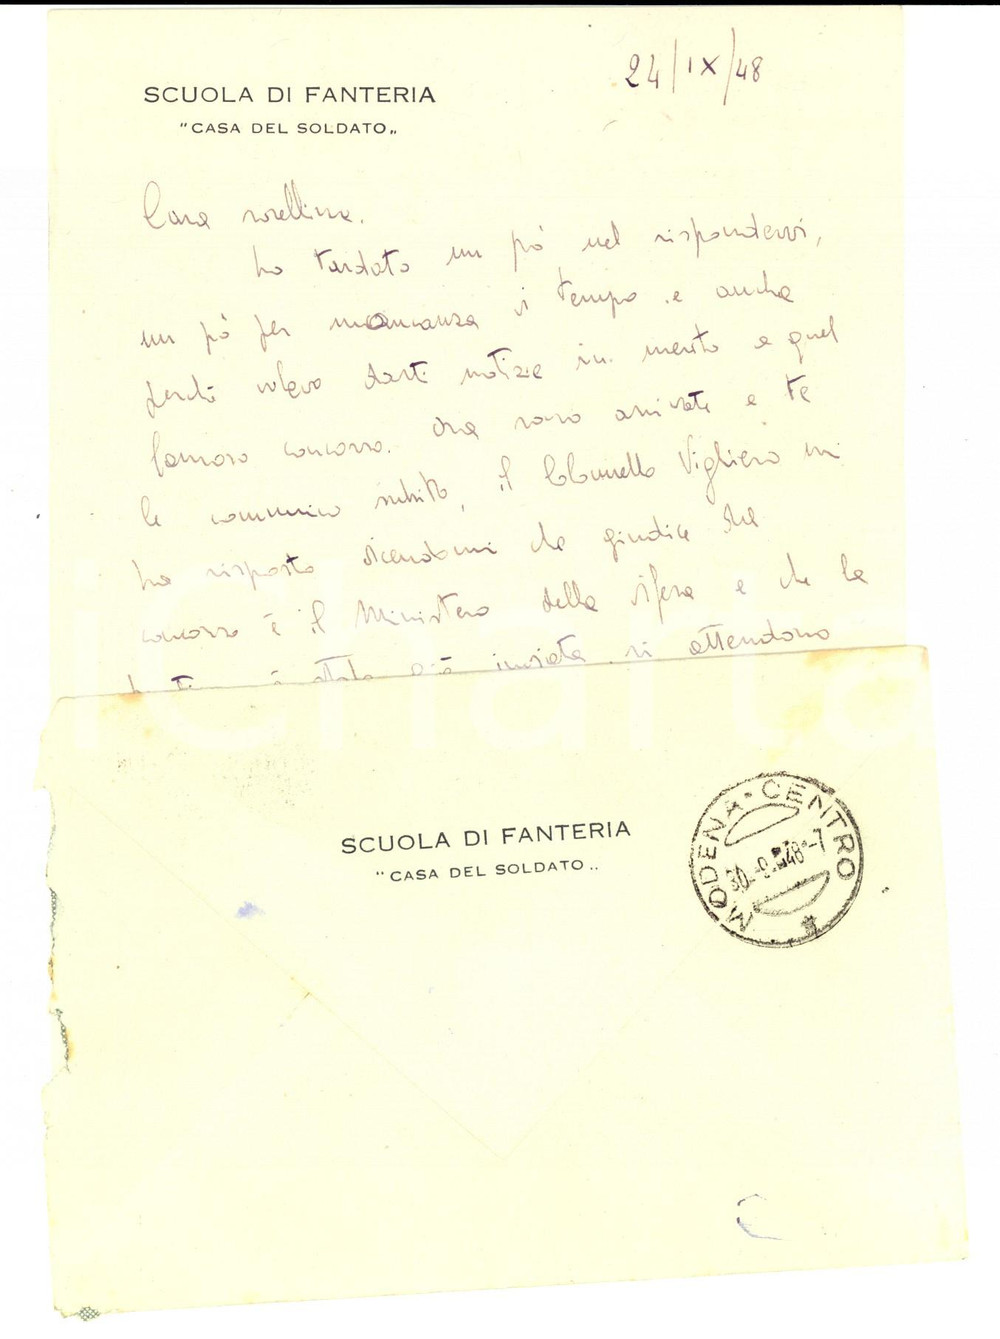 24/IX/48
SCUOLA DI FANTERIA
"CASA DEL SOLDATO„
Cara sorellina.
ho tardato un pò nel rispondervi,
un pò per mancanza di tempo e anche
perché volevo darti notizie in merito a quel
famoso concorso. Ora sono arrivate e te
le comunico subito, il Colonnello Vigliero mi
ha risposto dicendomi che giudice del
concorso è il Ministero della difesa e che la
è stata già inviata. si attendono
SCUOLA DI FANTERIA
"CASA DEL SOLDATO„
MODENA-CENTRO
30.-9.48-7
iCharta